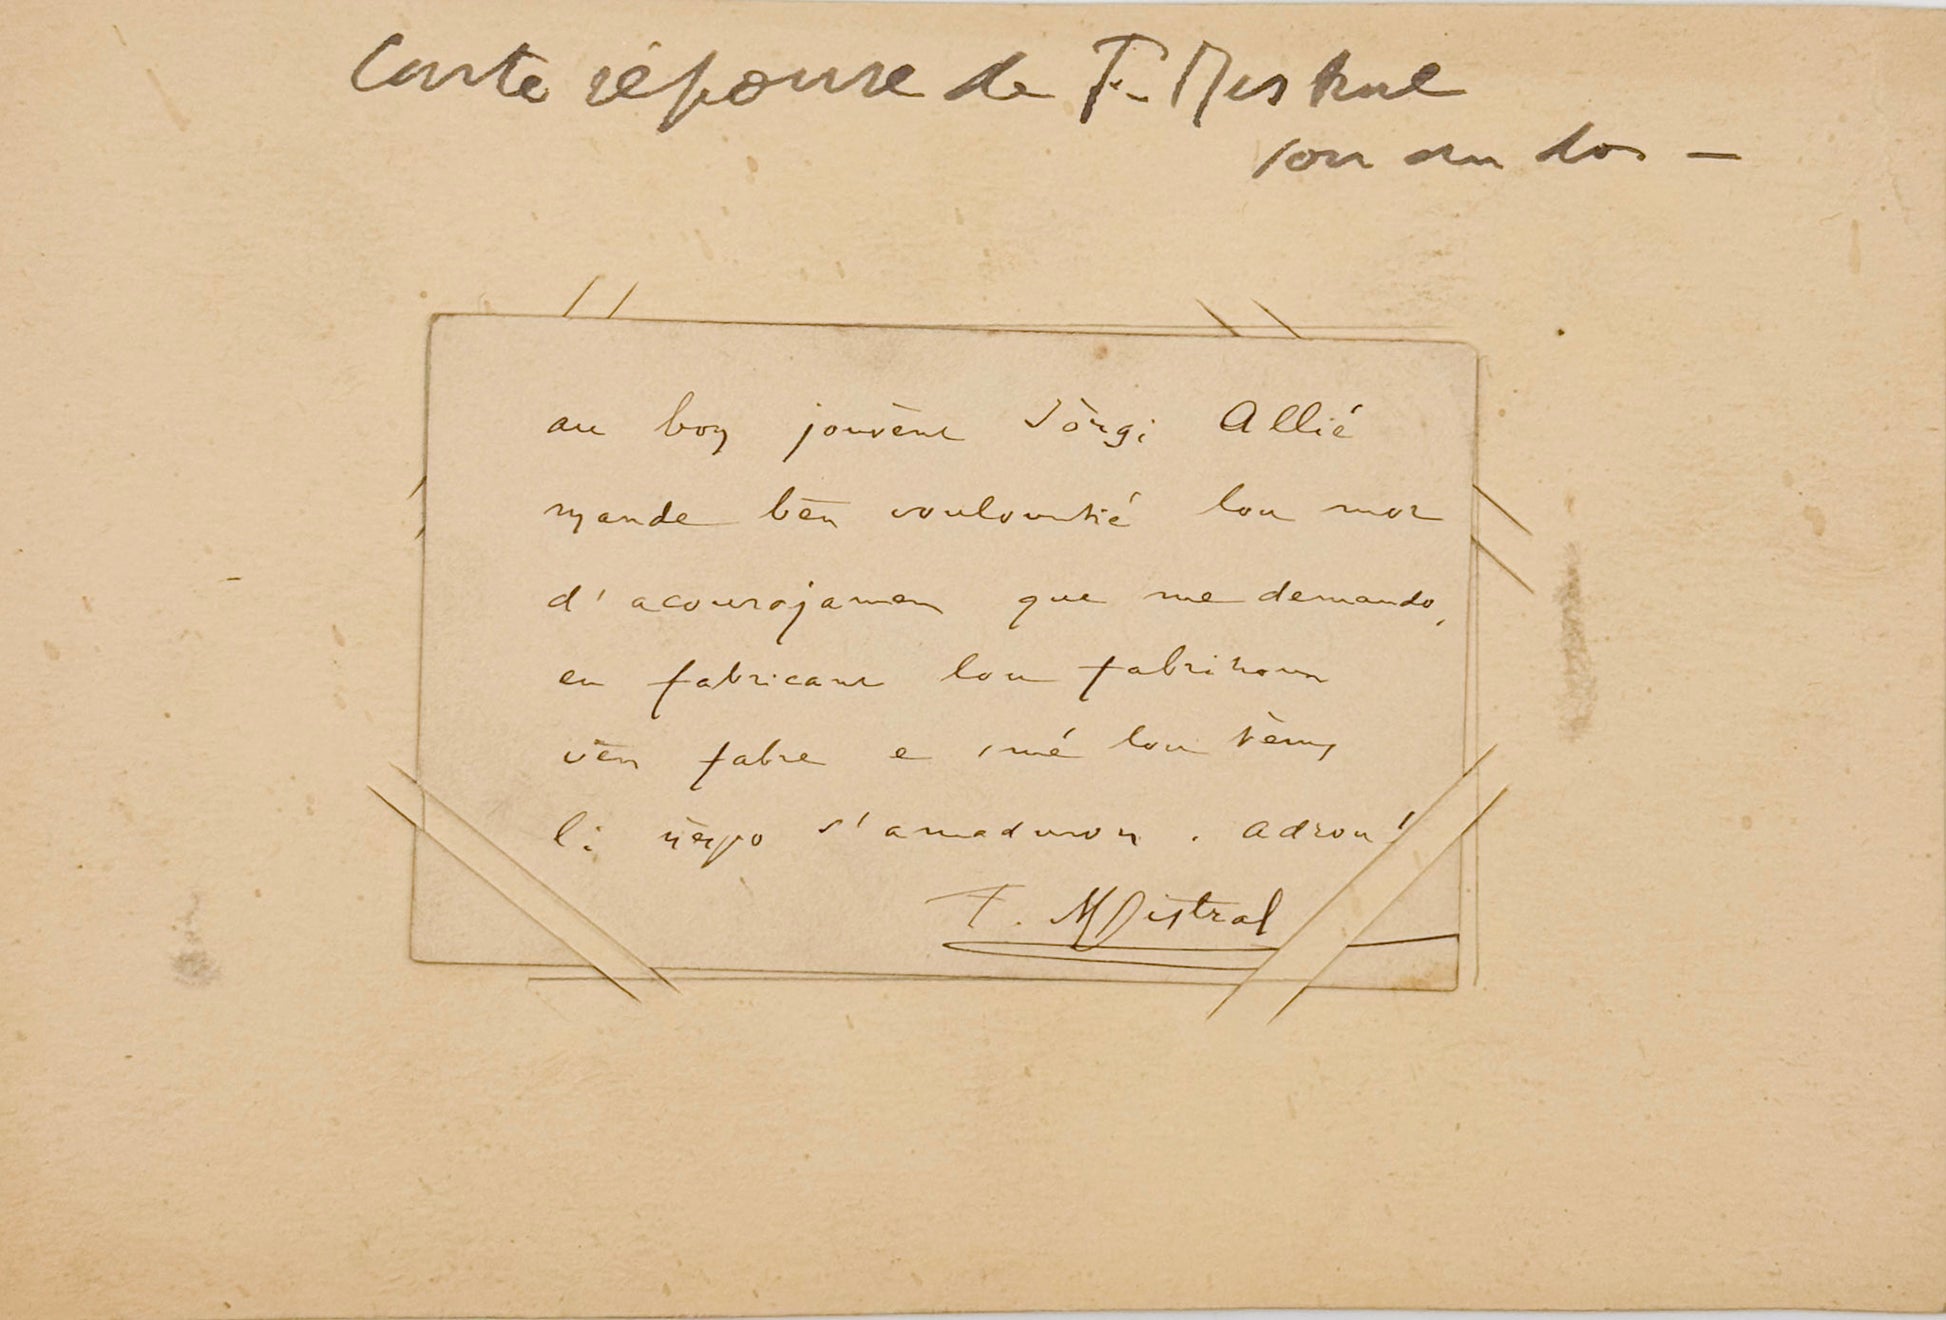 Carte réponse de F. Mistral
son au dos –
au bon jouvènt Jòrgi Allié
mande bèn voulountié lou mot
d'acourajamen que me demando,
en fabricant lou fabricant
vèn fabre e 'mé lou tèms
li nèspo s'amaduron. adrou!
F. Mistral